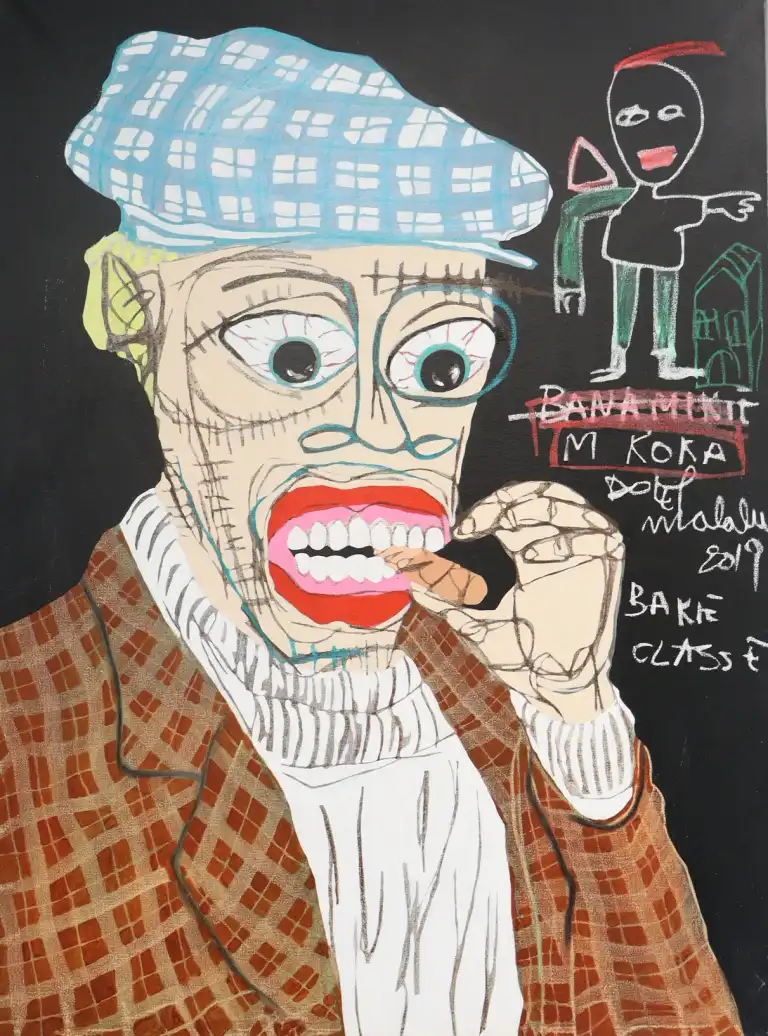 BANAMIKIE
M KOKA
DOLET
Malalu
2019
BAKIE
CLASSE